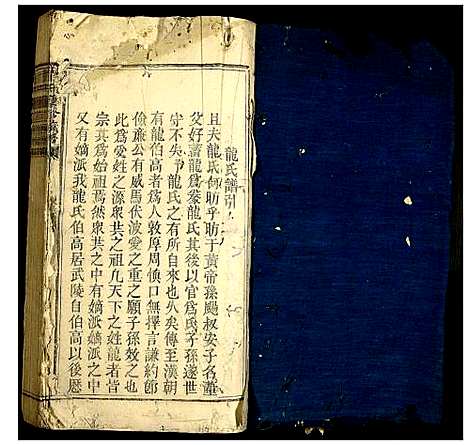 龍氏譜引
且夫龍氏師昉乎昉于黃帝孫颺叔安子名董
父好畜龍爲豢龍氏其後以官爲氏子孫遂世
守不失乎龍氏之有所自來也久矣傳至漢朝
有龍伯高者爲人敦厚周愼口無擇言謙約節
儉廉公有威馬伏波愛之重之願子孫效之也
此爲愛姓之源衆共之祖凡天下之姓龍者皆
宗共爲始祖焉然衆共之中有嫡派嫡派之中
又有嫡派我龍氏伯高居武陵自伯高以後歷